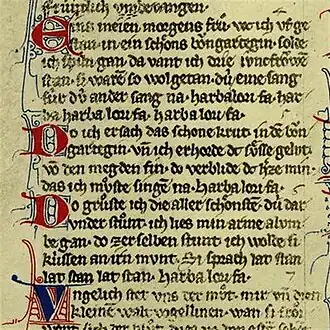 frúntlich vmbevangen·
Eins meien morgens frů· wc ich vf ge
stan· in ein schons bŏngartegin· solde
ich spiln gan· da vant ich drie ivncfrŏwē
stan· si warē so wolgetan· dú eine sang
fúr dú ander sang na· harbalori fa· har
ba harba lori fa· harba lori fa·
Do ich ersach das schone krut· in dē bŏn
gartegin· vn̄ ich erhorde dc sŏsse gelut
vō den megdin fin· do verblide dc h'ze min·
das ich mvste singē na· harba lori fa·
Do grůste ich die aller schonstē· dú dar
vnder stůnt· ich lies min arme al vm
be gan· do zer selben stunt· ich wolde si
kússen an irn mvnt· si sprach lat stan
lat stan lat stan· harba lori fa·
Vngelich stet vns der můt· mir vn̄ dien
kleinē walt vogellinen· wan si frŏ